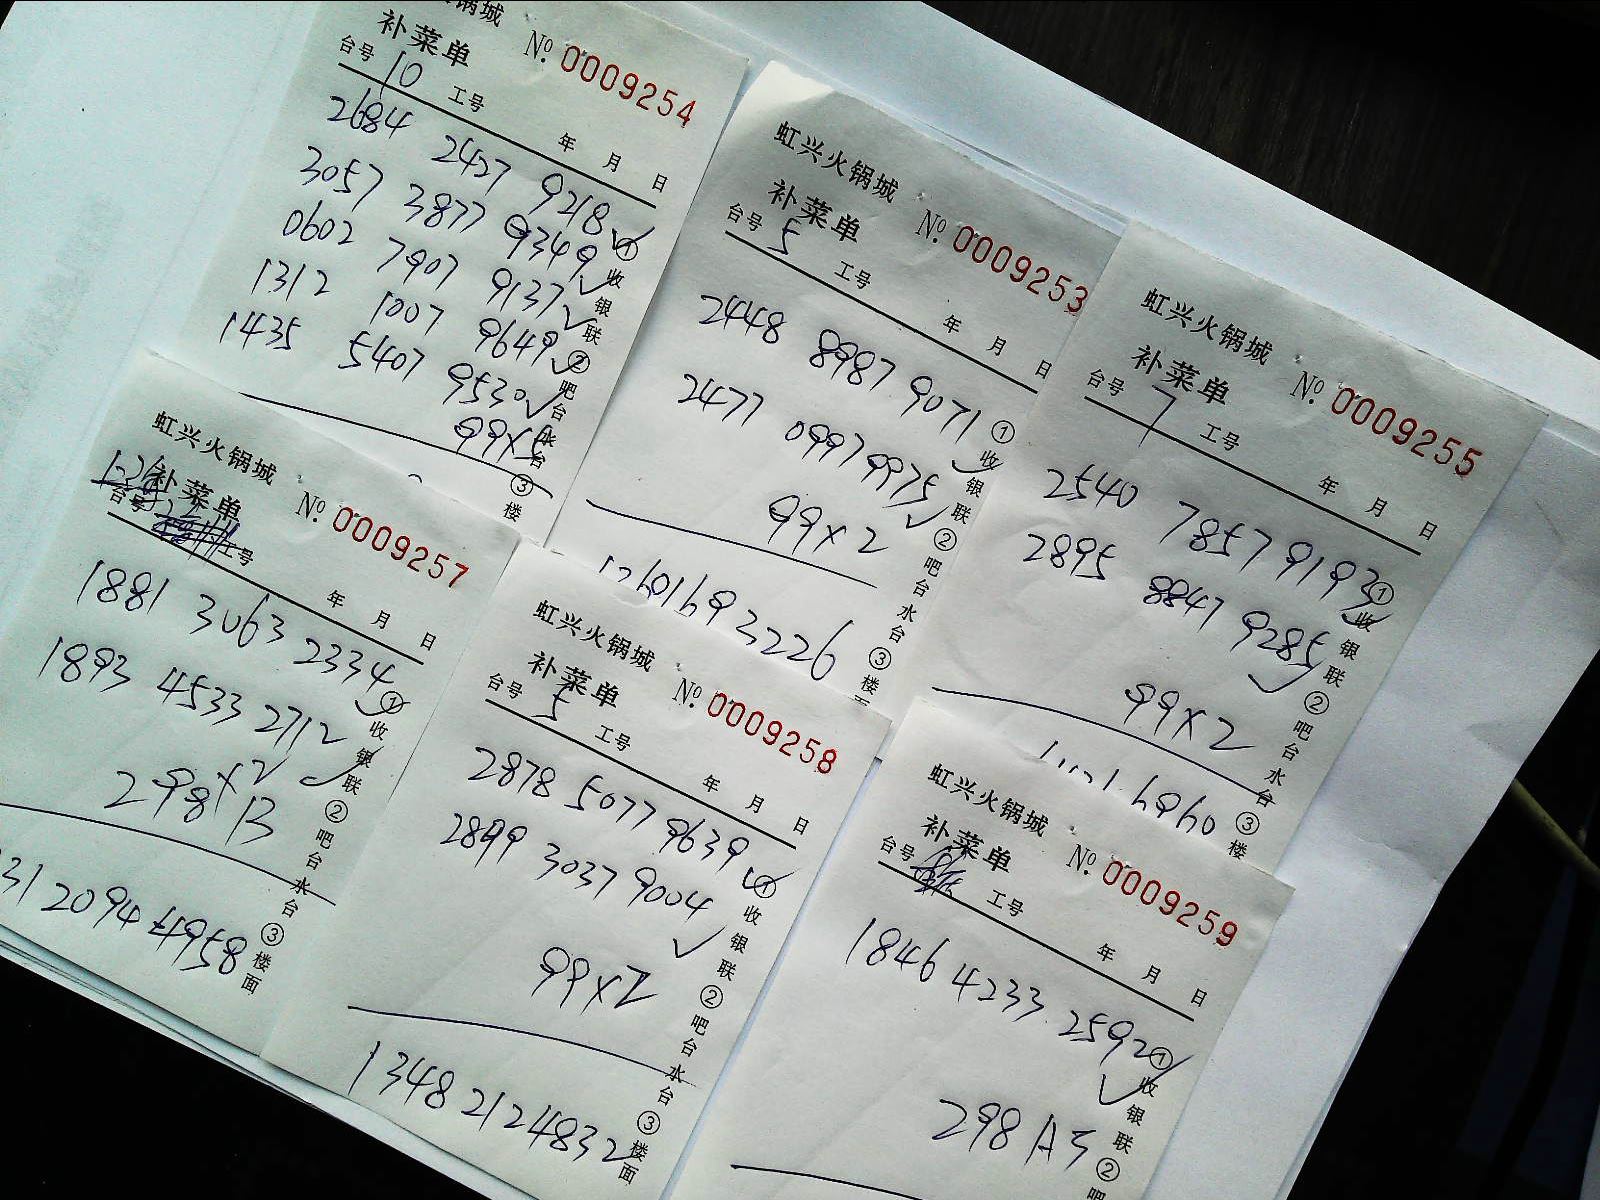 火锅城
补菜单 № 0009254
台号 10 工号 年 月 日
2684 2427 9218
3057 3877 9349
0602 7907 9137
1312 1007 9649
1435 5407 9530
99×5
①收银联 ②吧台水台 ③楼
虹兴火锅城
补菜单 № 0009253
台号 5 工号 年 月 日
2448 8987 9071
2477 0997 9975
99×2
①收银联 ②吧台水台 ③楼面
12601693226
虹兴火锅城
补菜单 № 0009255
台号 7 工号 年 月 日
2540 7857 9193
2895 8847 9285
99×2
①收银联 ②吧台水台 ③楼
6960
虹兴火锅城
补菜单 № 0009257
台号 工号 年 月 日
1881 3063 2334
1893 4533 2712
298×2
①收银联 ②吧台水台 ③楼面
31 2094 4958
虹兴火锅城
补菜单 № 0009258
台号 5 工号 年 月 日
2878 5077 9639
2899 3037 9004
99×2
①收银联 ②吧台水台 ③楼面
13482124832
虹兴火锅城
补菜单 № 0009259
台号 工号 年 月 日
1846 4233 2592
298
①收银联 ②吧